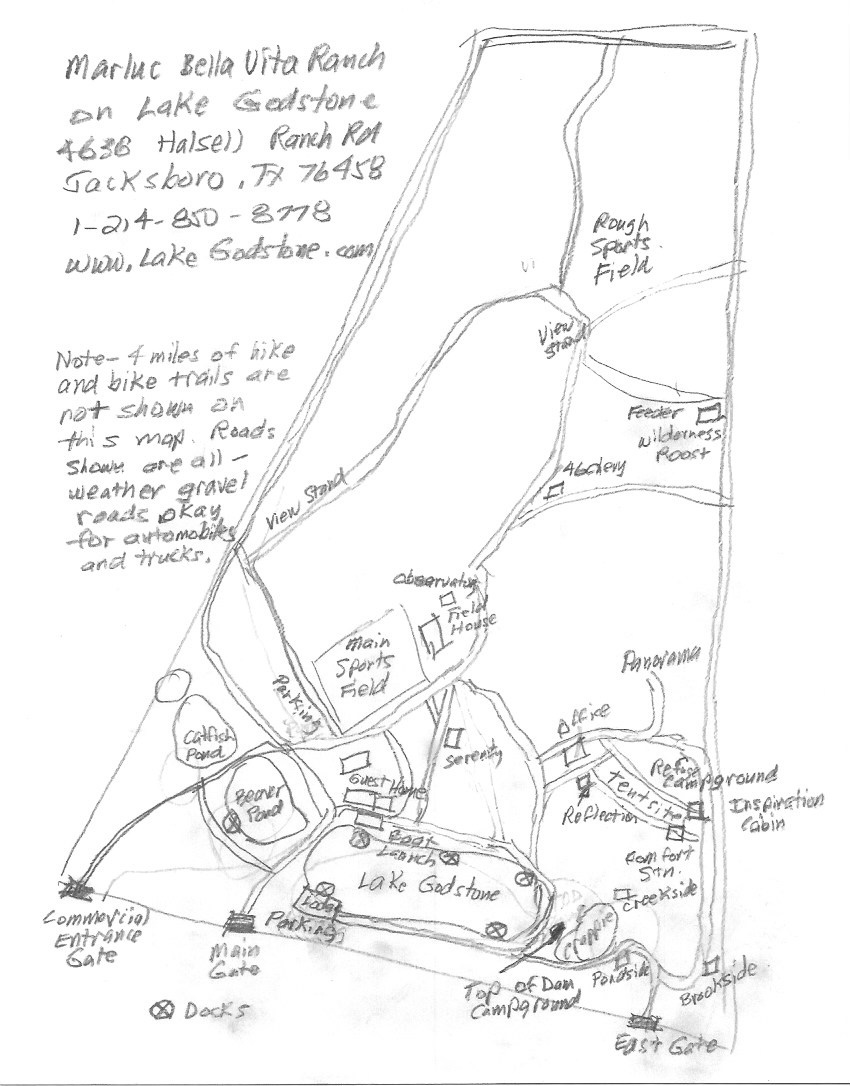 Marluc Bella Vita Ranch
on Lake Godstone
4636 Halsell Ranch Rd
Jacksboro, TX 76458
1-214-850-8778
www.LakeGodstone.com
Note- 4 miles of hike
and bike trails are
not shown on
this map. Roads
shown are all-
weather gravel
roads okay
for automobiles
and trucks.
Rough
Sports
Field
View
Stand
Feeder
Wilderness
Roost
View Stand
Observatory
Field
House
Main
Sports
Field
Parking
Panorama
Office
Serenity
Catfish
Pond
Beaver
Pond
Guest Home
Refuge
Campground
Tent site
Reflection
Inspiration
Cabin
Comfort
Stn.
Creekside
Boat
Launch
Lake Godstone
Lodge
Parking
Crappie
Commercial
Entrance
Gate
Main
Gate
Top of Dam
Campground
Pondside
Brookside
East Gate
Docks